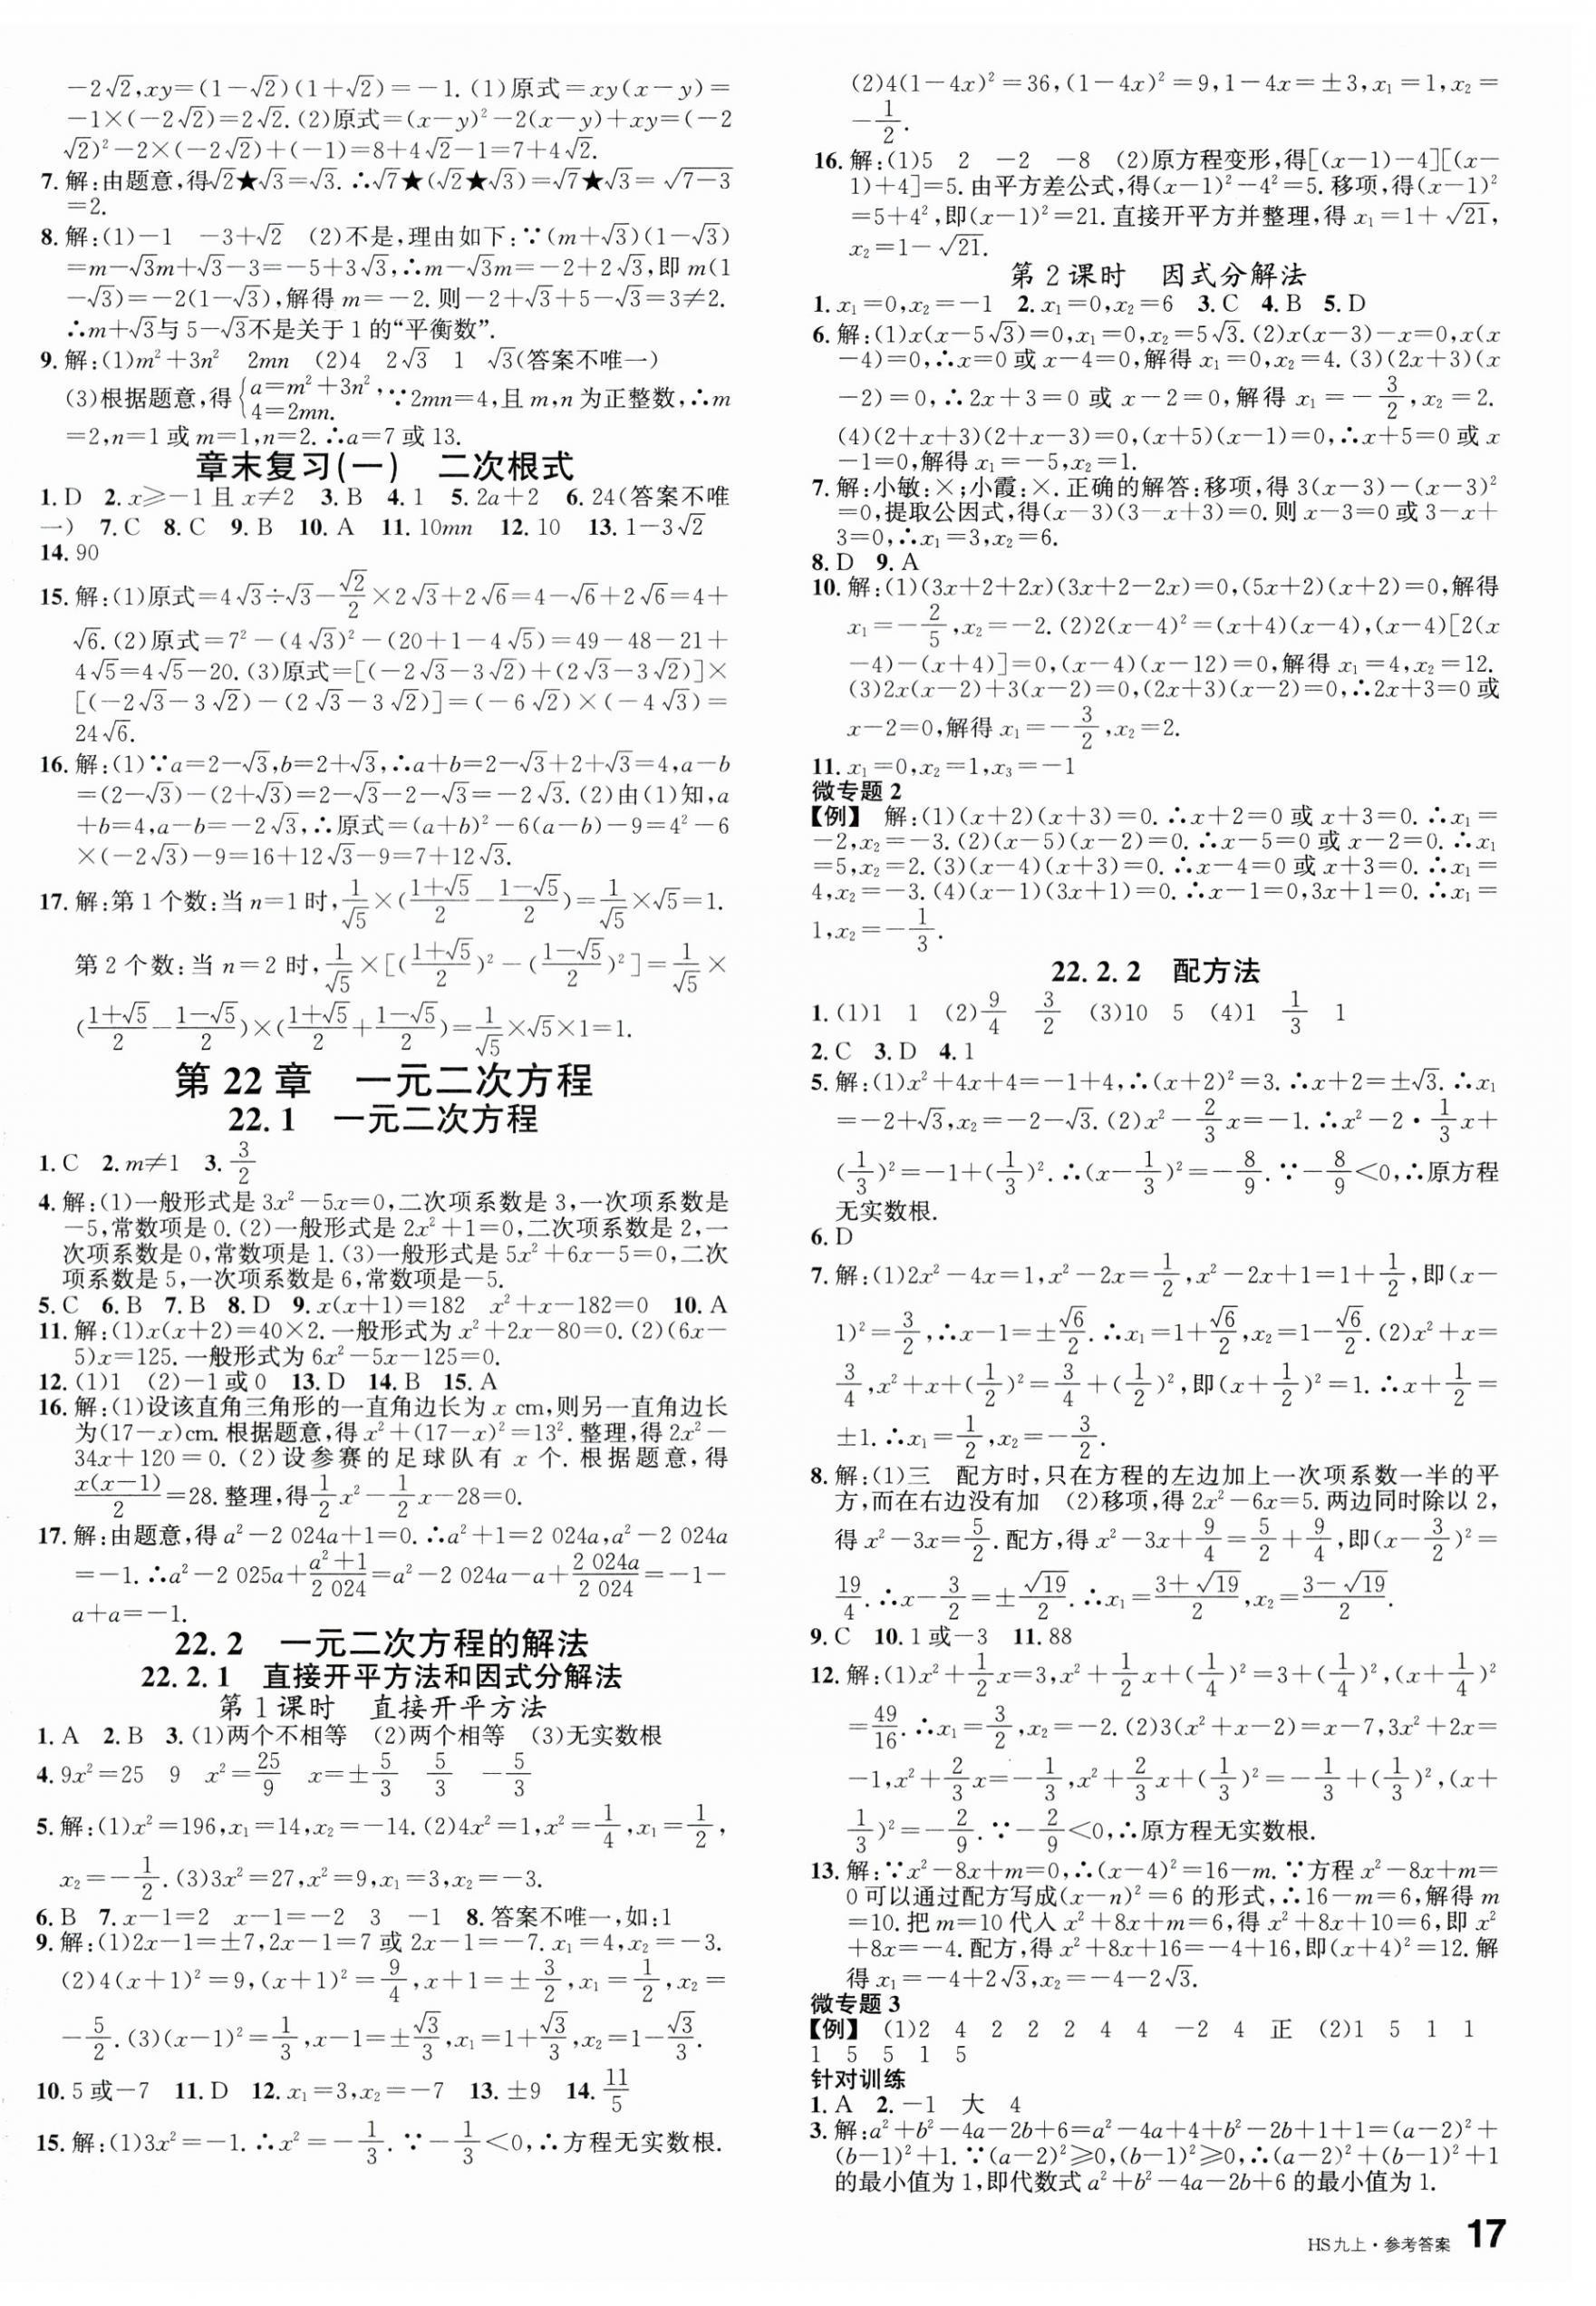 -2√2,xy=(1-√2)(1+√2)=-1.(1)原式=xy(x-y)=
-1×(-2√2)=2√2.(2)原式=(x-y)²-2(x-y)+xy=(-2
√2)²-2×(-2√2)+(-1)=8+4√2-1=7+4√2.
7.解:由题意,得√2★√3=√3.∴√7★(√2★√3)=√7★√3=√(7-3)
=2.
8.解:(1)-1 -3+√2 (2)不是,理由如下:∵(m+√3)(1-√3)
=m-√3m+√3-3=-5+3√3,∴m-√3m=-2+2√3,即m(1
-√3)=-2(1-√3),解得m=-2.则-2+√3+5-√3=3≠2.
∴m+√3与5-√3不是关于1的“平衡数”.
9.解:(1)m²+3n² 2mn (2)4 2√3 1 √3(答案不唯一)
(3)根据题意,得{a=m²+3n², 4=2mn. ∵2mn=4,且m,n为正整数,∴m
=2,n=1或m=1,n=2.∴a=7或13.
章末复习(一) 二次根式
1.D 2.x≥-1且x≠2 3.B 4.1 5.2a+2 6.24(答案不唯
一) 7.C 8.C 9.B 10.A 11.10mn 12.10 13.1-3√2
14.90
15.解:(1)原式=4√3÷√3-√2/2×2√3+2√6=4-√6+2√6=4+
√6.(2)原式=7²-(4√3)²-(20+1-4√5)=49-48-21+
4√5=4√5-20.(3)原式=[(-2√3-3√2)+(2√3-3√2)]×
[(-2√3-3√2)-(2√3-3√2)]=(-6√2)×(-4√3)=
24√6.
16.解:(1)∵a=2-√3,b=2+√3,∴a+b=2-√3+2+√3=4,a-b
=(2-√3)-(2+√3)=2-√3-2-√3=-2√3.(2)由(1)知,a
+b=4,a-b=-2√3,∴原式=(a+b)²-6(a-b)-9=4²-6
×(-2√3)-9=16+12√3-9=7+12√3.
17.解:第1个数:当n=1时,1/√5×((1+√5)/2-(1-√5)/2)=1/√5×√5=1.
第2个数:当n=2时,1/√5×[((1+√5)/2)²-((1-√5)/2)²]=1/√5×
((1+√5)/2-(1-√5)/2)×((1+√5)/2+(1-√5)/2)=1/√5×√5×1=1.
第22章 一元二次方程
22.1 一元二次方程
1.C 2.m≠1 3.3/2
4.解:(1)一般形式是3x²-5x=0,二次项系数是3,一次项系数是
-5,常数项是0.(2)一般形式是2x²+1=0,二次项系数是2,一
次项系数是0,常数项是1.(3)一般形式是5x²+6x-5=0,二次
项系数是5,一次项系数是6,常数项是-5.
5.C 6.B 7.B 8.D 9.x(x+1)=182 x²+x-182=0 10.A
11.解:(1)x(x+2)=40×2.一般形式为x²+2x-80=0.(2)(6x-
5)x=125.一般形式为6x²-5x-125=0.
12.(1)1 (2)-1或0 13.D 14.B 15.A
16.解:(1)设该直角三角形的一直角边长为x cm,则另一直角边长
为(17-x)cm.根据题意,得x²+(17-x)²=13².整理,得2x²-
34x+120=0.(2)设参赛的足球队有x个.根据题意,得
x(x-1)/2=28.整理,得1/2x²-1/2x-28=0.
17.解:由题意,得a²-2 024a+1=0.∴a²+1=2 024a,a²-2 024a
=-1.∴a²-2 025a+(a²+1)/2 024=a²-2 024a-a+2 024a/2 024=-1-
a+a=-1.
22.2 一元二次方程的解法
22.2.1 直接开平方法和因式分解法
第1课时 直接开平方法
1.A 2.B 3.(1)两个不相等 (2)两个相等 (3)无实数根
4.9x²=25 9 x²=25/9 x=±5/3 5/3 -5/3
5.解:(1)x²=196,x₁=14,x₂=-14.(2)4x²=1,x²=1/4,x₁=1/2,
x₂=-1/2.(3)3x²=27,x²=9,x₁=3,x₂=-3.
6.B 7.x-1=2 x-1=-2 3 -1 8.答案不唯一,如:1
9.解:(1)2x-1=±7,2x-1=7或2x-1=-7.x₁=4,x₂=-3.
(2)4(x+1)²=9,(x+1)²=9/4,x+1=±3/2,x₁=1/2,x₂=
-5/2.(3)(x-1)²=1/3,x-1=±√3/3,x₁=1+√3/3,x₂=1-√3/3.
10.5或-7 11.D 12.x₁=3,x₂=-7 13.±9 14.11/5
15.解:(1)3x²=-1.∴x²=-1/3.∵-1/3<0,∴方程无实数根.
(2)4(1-4x)²=36,(1-4x)²=9,1-4x=±3,x₁=1,x₂=
-1/2.
16.解:(1)5 2 -2 -8 (2)原方程变形,得[(x-1)-4][(x-
1)+4]=5.由平方差公式,得(x-1)²-4²=5.移项,得(x-1)²
=5+4²,即(x-1)²=21.直接开平方并整理,得x₁=1+√21,
x₂=1-√21.
第2课时 因式分解法
1.x₁=0,x₂=-1 2.x₁=0,x₂=6 3.C 4.B 5.D
6.解:(1)x(x-5√3)=0,x₁=0,x₂=5√3.(2)x(x-3)-x=0,x(x
-4)=0,∴x=0或x-4=0,解得x₁=0,x₂=4.(3)(2x+3)(x
-2)=0,∴2x+3=0或x-2=0,解得x₁=-3/2,x₂=2.
(4)(2+x+3)(2+x-3)=0,(x+5)(x-1)=0,∴x+5=0或x
-1=0,解得x₁=-5,x₂=1.
7.解:小敏:×;小霞:×.正确的解答:移项,得3(x-3)-(x-3)²
=0,提取公因式,得(x-3)(3-x+3)=0.则x-3=0或3-x+
3=0,∴x₁=3,x₂=6.
8.D 9.A
10.解:(1)(3x+2+2x)(3x+2-2x)=0,(5x+2)(x+2)=0,解得
x₁=-2/5,x₂=-2.(2)2(x-4)²=(x+4)(x-4),(x-4)[2(x
-4)-(x+4)]=0,(x-4)(x-12)=0,解得x₁=4,x₂=12.
(3)2x(x-2)+3(x-2)=0,(2x+3)(x-2)=0,∴2x+3=0或
x-2=0,解得x₁=-3/2,x₂=2.
11.x₁=0,x₂=1,x₃=-1
微专题2
【例】 解:(1)(x+2)(x+3)=0.∴x+2=0或x+3=0.∴x₁=
-2,x₂=-3.(2)(x-5)(x-2)=0.∴x-5=0或x-2=0.∴x₁
=5,x₂=2.(3)(x-4)(x+3)=0.∴x-4=0或x+3=0.∴x₁=
4,x₂=-3.(4)(x-1)(3x+1)=0.∴x-1=0,3x+1=0.∴x₁=
1,x₂=-1/3.
22.2.2 配方法
1.(1)1 1 (2)9/4 3/2 (3)10 5 (4)1 1/3 1
2.C 3.D 4.1
5.解:(1)x²+4x+4=-1+4,∴(x+2)²=3.∴x+2=±√3.∴x₁
=-2+√3,x₂=-2-√3.(2)x²-2/3x=-1.∴x²-2·1/3x+
(1/3)²=-1+(1/3)².∴(x-1/3)²=-8/9.∵-8/9<0,∴原方程
无实数根.
6.D
7.解:(1)2x²-4x=1,x²-2x=1/2,x²-2x+1=1+1/2,即(x-
1)²=3/2,∴x-1=±√6/2.∴x₁=1+√6/2,x₂=1-√6/2.(2)x²+x=
3/4,x²+x+(1/2)²=3/4+(1/2)²,即(x+1/2)²=1.∴x+1/2=
±1.∴x₁=1/2,x₂=-3/2.
8.解:(1)三 配方时,只在方程的左边加上一次项系数一半的平
方,而在右边没有加 (2)移项,得2x²-6x=5.两边同时除以2,
得x²-3x=5/2.配方,得x²-3x+9/4=5/2+9/4,即(x-3/2)²=
19/4.∴x-3/2=±√19/2.∴x₁=(3+√19)/2,x₂=(3-√19)/2.
9.C 10.1或-3 11.88
12.解:(1)x²+1/2x=3,x²+1/2x+(1/4)²=3+(1/4)²,(x+1/4)²
=49/16.∴x₁=3/2,x₂=-2.(2)3(x²+x-2)=x-7,3x²+2x=
-1,x²+2/3x=-1/3,x²+2/3x+(1/3)²=-1/3+(1/3)²,(x+
1/3)²=-2/9.∵-2/9<0,∴原方程无实数根.
13.解:∵x²-8x+m=0,∴(x-4)²=16-m.∵方程x²-8x+m=
0可以通过配方写成(x-n)²=6的形式,∴16-m=6,解得m
=10.把m=10代入x²+8x+m=6,得x²+8x+10=6,即x²
+8x=-4.配方,得x²+8x+16=-4+16,即(x+4)²=12.解
得x₁=-4+2√3,x₂=-4-2√3.
微专题3
【例】 (1)2 4 2 2 2 4 4 -2 4 正 (2)1 5 1 1
1 5 5 1 5
针对训练
1.A 2.-1 大 4
3.解:a²+b²-4a-2b+6=a²-4a+4+b²-2b+1+1=(a-2)²+
(b-1)²+1.∵(a-2)²≥0,(b-1)²≥0,∴(a-2)²+(b-1)²+1
的最小值为1,即代数式a²+b²-4a-2b+6的最小值为1.
HS九上·参考答案 17